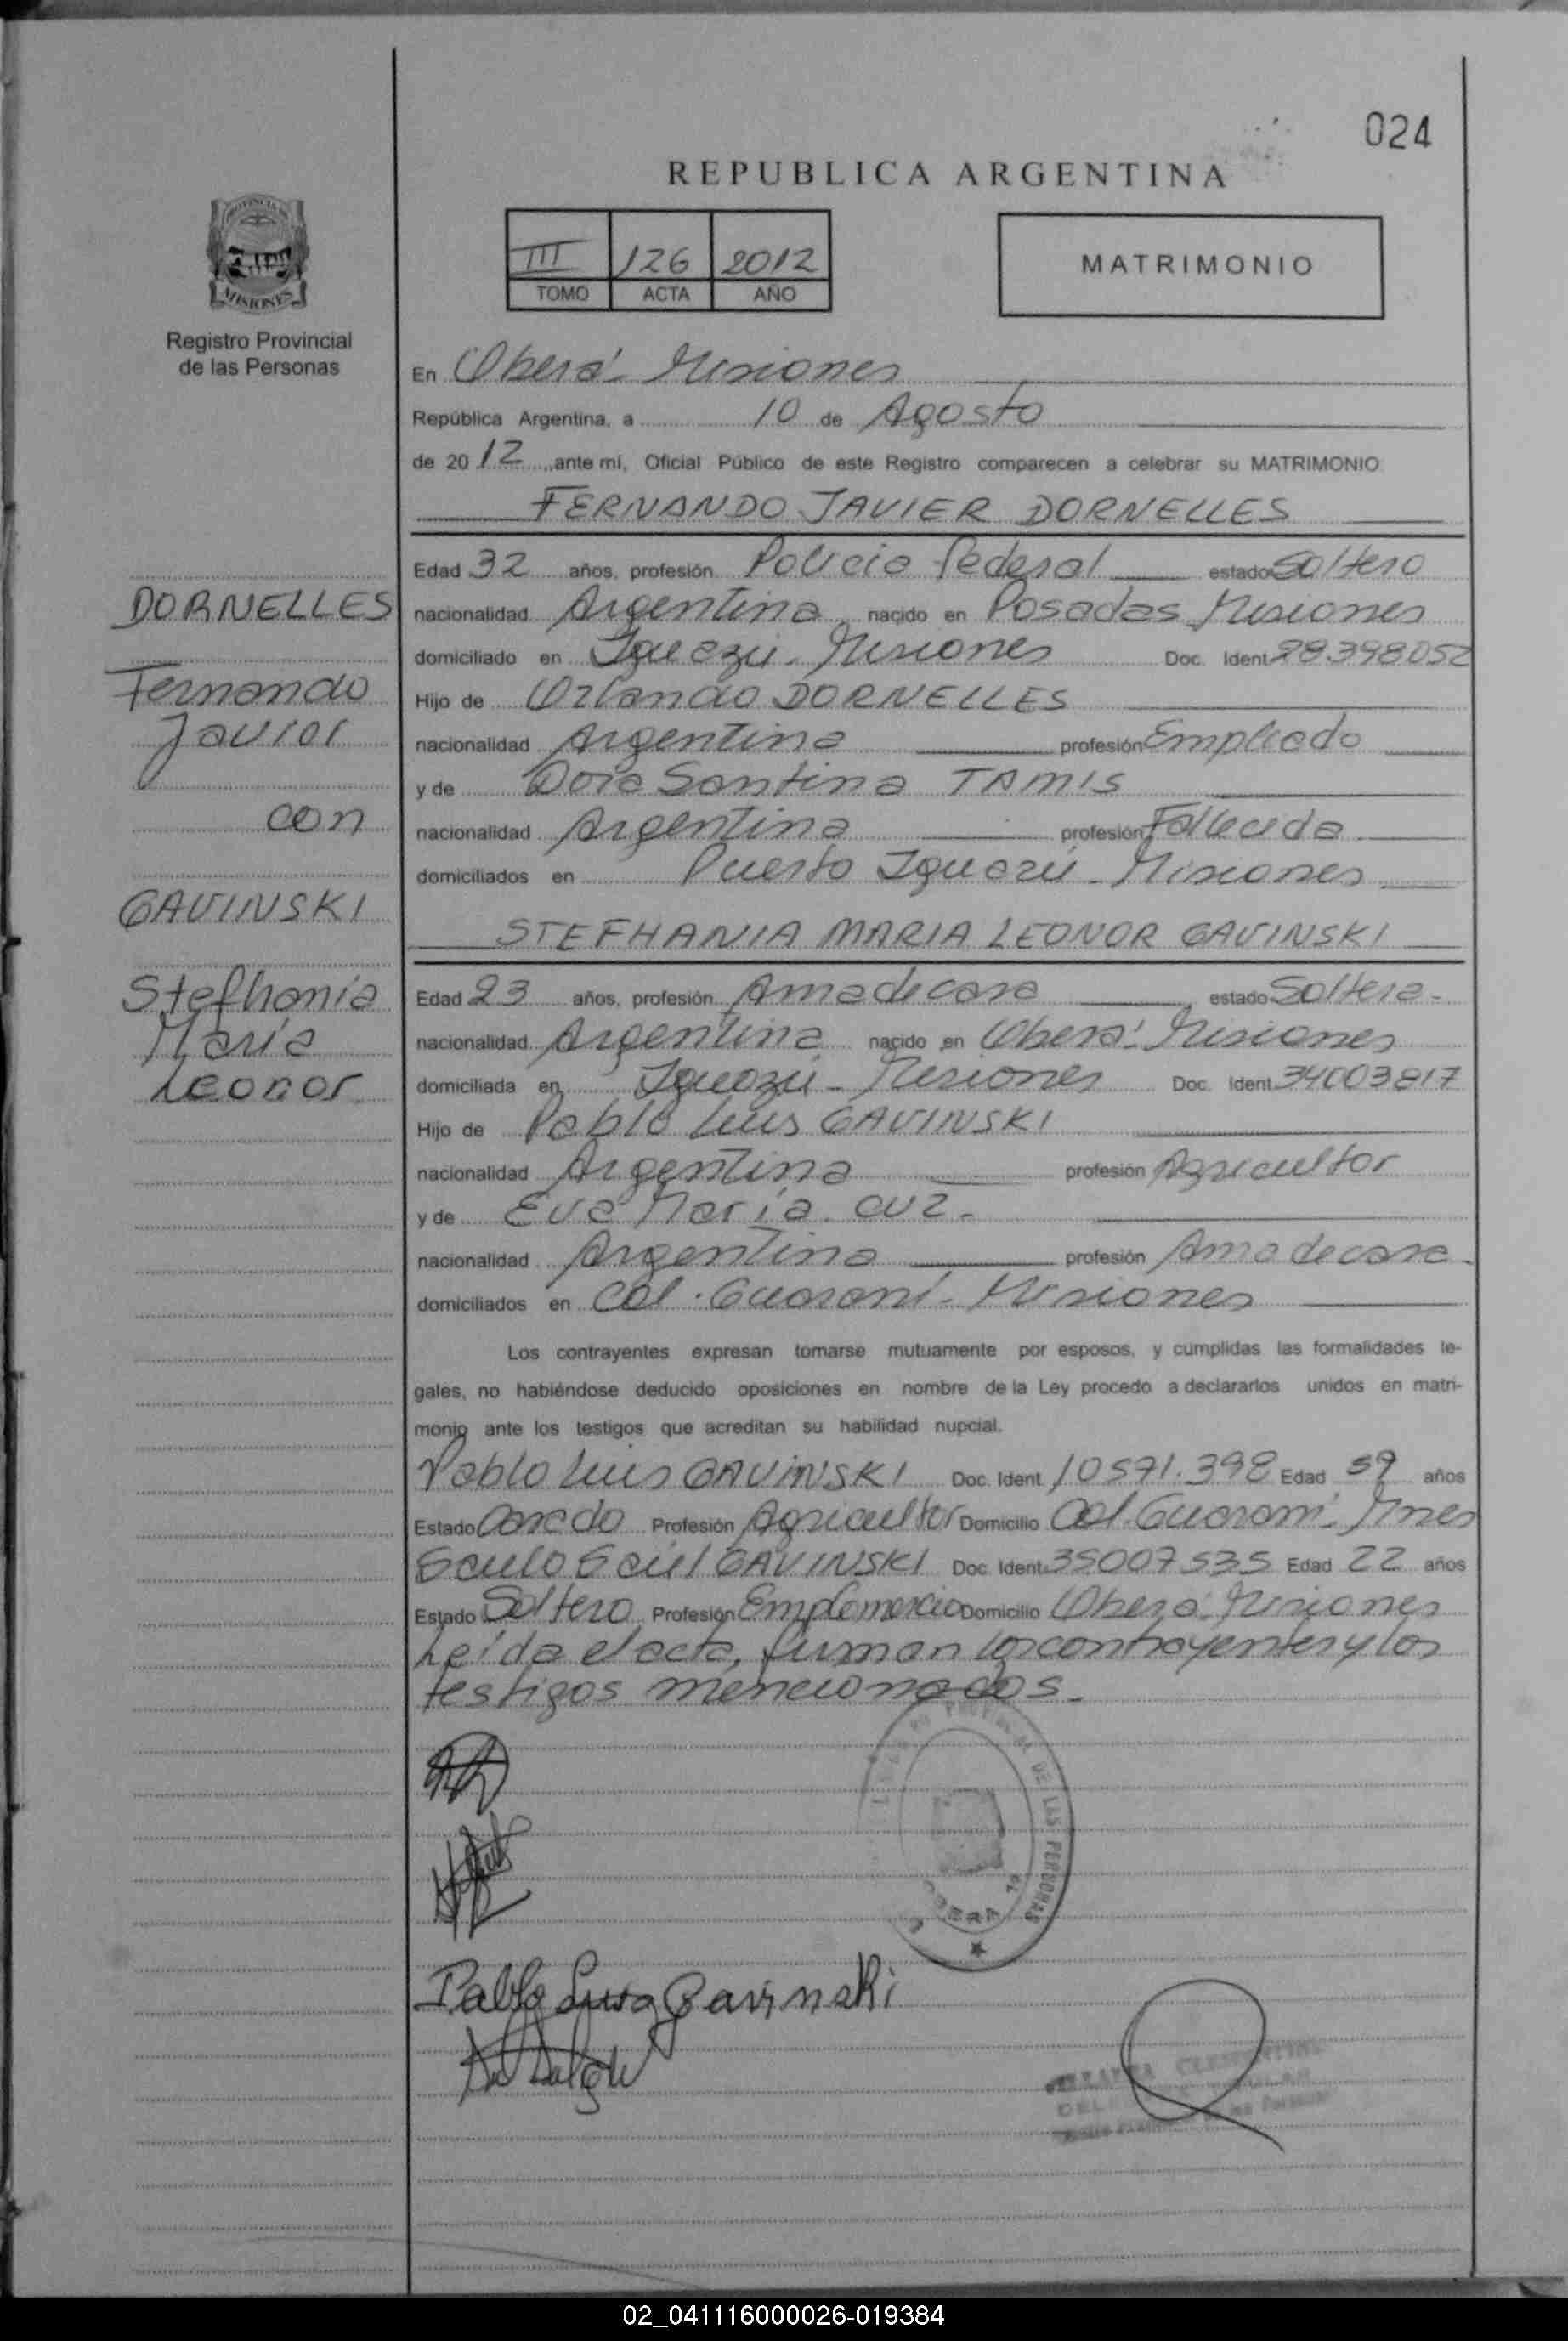 024
REPUBLICA ARGENTINA
III 126 2012
TOMO ACTA AÑO
MATRIMONIO
MISIONES
Registro Provincial
de las Personas
En Oberá - Misiones
República Argentina, a 10 de Agosto
de 20 12 ante mi, Oficial Público de este Registro comparecen a celebrar su MATRIMONIO
FERNANDO JAVIER DORNELLES
Edad 32 años, profesión Policia Federal estado Soltero
DORNELLES
nacionalidad Argentina nacido en Posadas Misiones
domiciliado en Iguazú - Misiones Doc. Ident. 28.398.052
Fernando
Hijo de Orlando DORNELLES
Javier
nacionalidad Argentina profesión Empleado
y de Santina TAMIS
con
nacionalidad Argentina profesión Fallecida
domiciliados en Puerto Iguazú - Misiones
GAVINSKI
STEFHANIA MARIA LEONOR GAVINSKI
Stefhania
Edad 23 años, profesión Ama de casa estado Soltera -
María
nacionalidad Argentina nacido en Oberá - Misiones
Leonor
domiciliada en Iguazú - Misiones Doc. Ident. 34003817
Hijo de Pablo Luis GAVINSKI
nacionalidad Argentina profesión Agricultor
y de Eva María
nacionalidad Argentina profesión Ama de casa -
domiciliados en Col. Guaraní - Misiones
Los contrayentes expresan tomarse mutuamente por esposos, y cumplidas las formalidades le-
gales, no habiéndose deducido oposiciones en nombre de la Ley procedo a declararlos unidos en matri-
monio ante los testigos que acreditan su habilidad nupcial.
Pablo Luis GAVINSKI Doc. Ident. 10571.398 Edad 59 años
Estado Casado Profesión Agricultor Domicilio Col. Guaraní - Mnes
GAVINSKI Doc. Ident. 35007535 Edad 22 años
Estado Soltero Profesión Emp Comercio Domicilio Oberá - Misiones
Leída el acta, firman los contrayentes y los
testigos mencionados -
DE LAS PERSONAS
Pablo Luis Gavinski
02_041116000026-019384